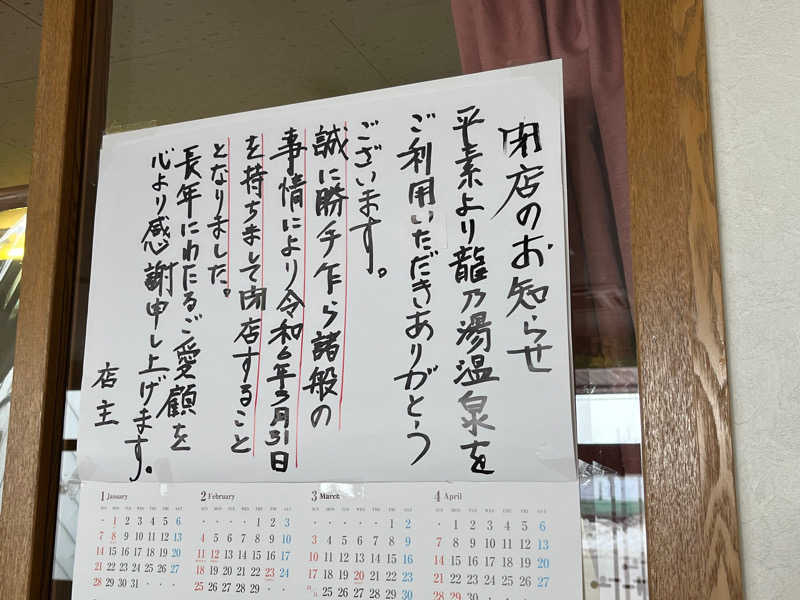 閉店のお知らせ
平素より龍乃湯温泉を
ご利用いただきありがとう
ございます。
誠に勝手乍ら諸般の
事情により令和6年3月31日
を持ちまして閉店すること
となりました。
長年にわたるご愛顧を
心より感謝申し上げます。
店主
1 January
SUN MON TUE WED THU FRI SAT
1 2 3 4 5 6
7 8 9 10 11 12 13
14 15 16 17 18 19 20
21 22 23 24 25 26 27
28 29 30 31
2 February
SUN MON TUE WED THU FRI SAT
1 2 3
4 5 6 7 8 9 10
11 12 13 14 15 16 17
18 19 20 21 22 23 24
25 26 27 28 29
3 March
SUN MON TUE WED THU FRI SAT
1 2
3 4 5 6 7 8 9
10 11 12 13 14 15 16
17 18 19 20 21 22 23
24/31 25 26 27 28 29 30
4 April
SUN MON TUE WED THU FRI SAT
1 2 3 4 5 6
7 8 9 10 11 12 13
14 15 16 17 18 19 20
21 22 23 24 25 26 27
28 29 30